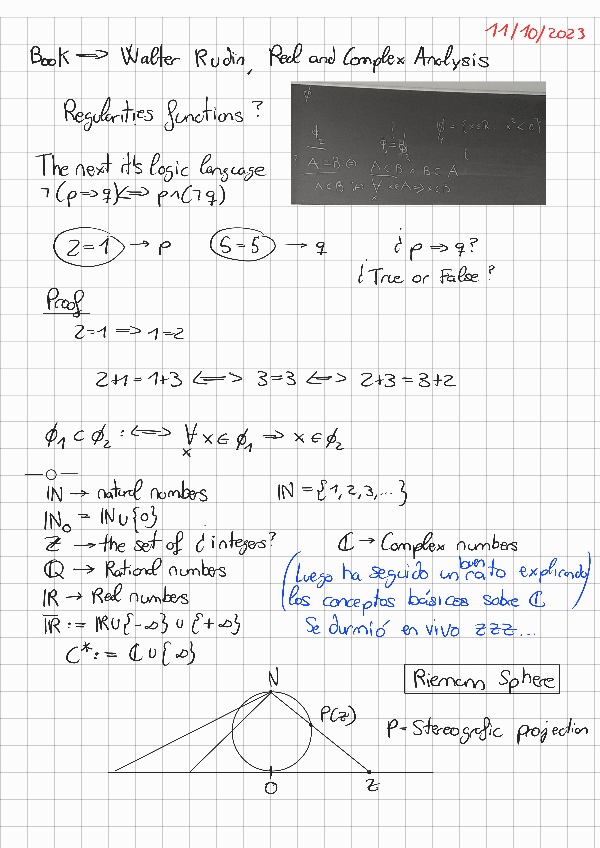 11/10/2023
Book → Walter Rudin, Real and Complex Analysis
Regularities functions?
The next it's logic language
¬(p⇒q)⇔ p∧(¬q)
2=1 → p 5=5 → q ¿ p ⇒ q?
¿True or False?
Proof
2=1 ⇒ 1=2
2+1 = 1+3 ⇔ 3=3 ⇔ 2+3 = 3+2
ϕ₁ ⊂ ϕ₂ :⇔ ∀x x ∈ ϕ₁ ⇒ x ∈ ϕ₂
—o—
ℕ → natural nombers ℕ = {1,2,3,...}
ℕ₀ = ℕ∪{0}
ℤ → the set of ¿integers? ℂ → Complex numbers
ℚ → Rational numbers
(Luego ha seguido un buen rato explicando
ℝ → Real numbers
los conceptos básicos sobre ℂ)
ℝ̅ := ℝ∪{-∞} ∪ {+∞}
Se durmió en vivo zzz...
C*:= ℂ ∪ {∞}
Riemann Sphere
N
P(z)
P-Stereografic projection
O z